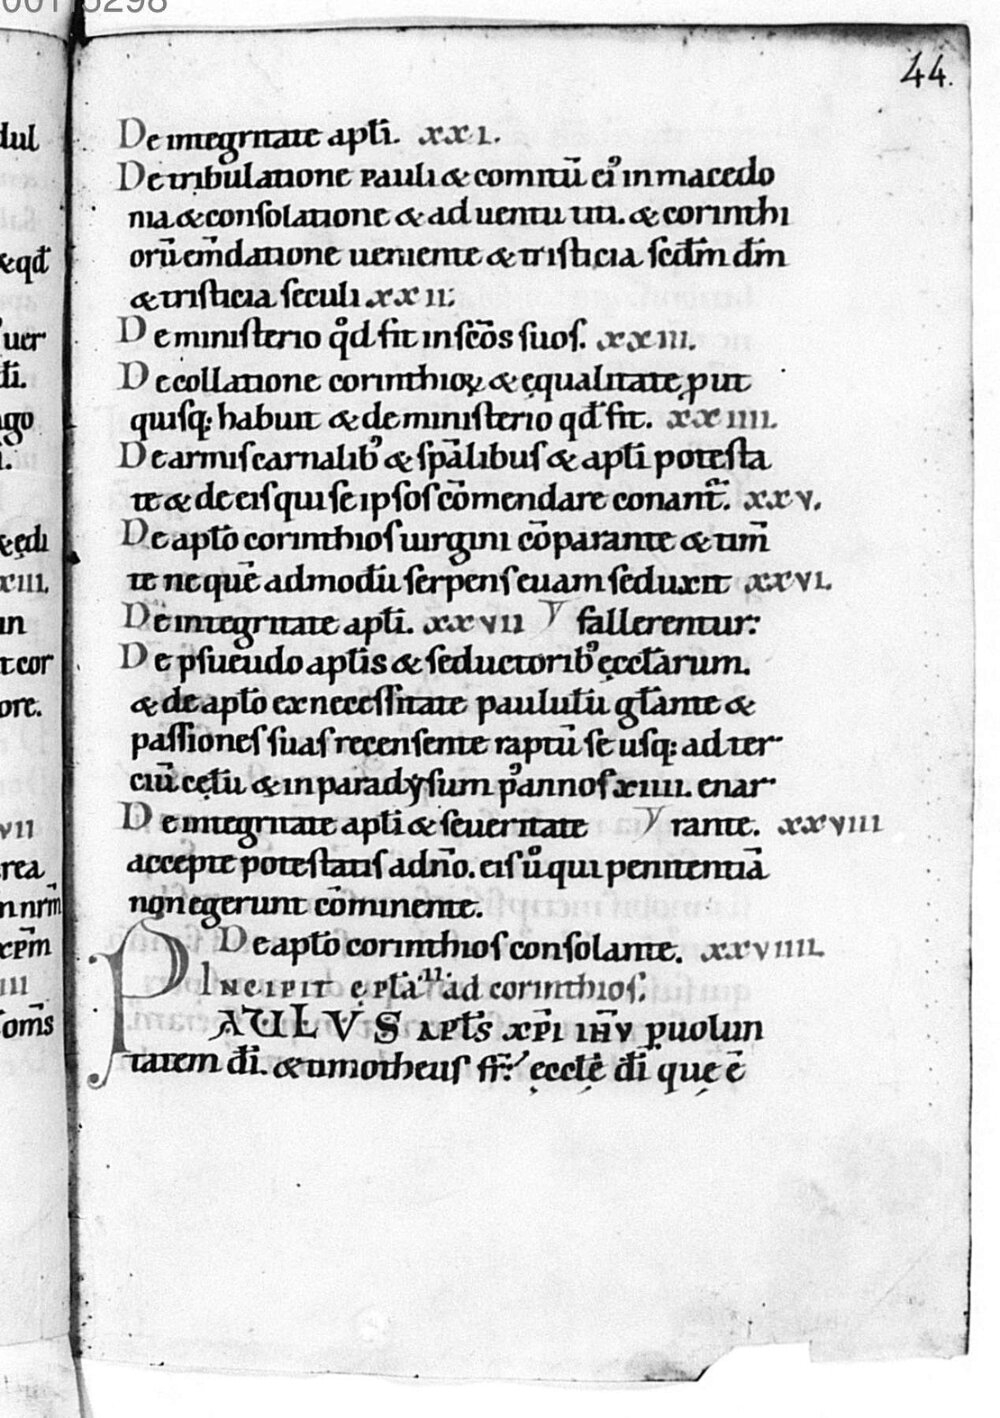 44.
De integritate apl̄i. xxi.
De tribulatione pauli & comitū ei᾽ in macedo
nia. & conſolatione & ad uentu titi. & corinthi
orū em̄datione ueniente & triſticia ſed̄m dm̄
& triſticia ſeculi xxii:
De miniſterio qd̊ fit in ſcōs ſuoſ. xxiii.
De collatione corinthioꝝ & ęqualitate ꝓut
quiſq; habuit & de miniſterio qđ fit. xxiiii.
De armiſ carnalib᾽ & ſpālibuſ & apl̄i poteſta
te & de eiſ qui ſe ipſoſ cōmendare conant̄. xxv.
De apl̄o corinthioſ uirgini cōparante & tim̄
te ne quē admodū ſerpenſ euam ſeduxit xxvi.
De integritate apl̄i. xxvii fallerentur:
De pſueudo apl̄is & ſeductorib᾽ ęcc̄tarum.
& de apl̄o ex neceſſitate paulul̄ū gl̄ante &
paſſioneſ ſuaſ recenſente raptū ſe uſq; ad ter
ciū cęlū & in paradyſum p᾽ annoſ xiiii. enar
De integritate apl̄i & ſeueritate rante. xxviii
accepte poteſtatiſ a dn̄o. eiſ ů qui penitentiā
non egerunt cōminente.
De apl̄o corinthioſ conſolante. xxviiii.
Incipit epl̄a .II. ad corinthioſ.
PAULVS apl̄s xp̄i ih̄v ꝑ uolun
tatem d̄i. & timotheuſ fr̄: ęccl̄ę d̄i quę ē